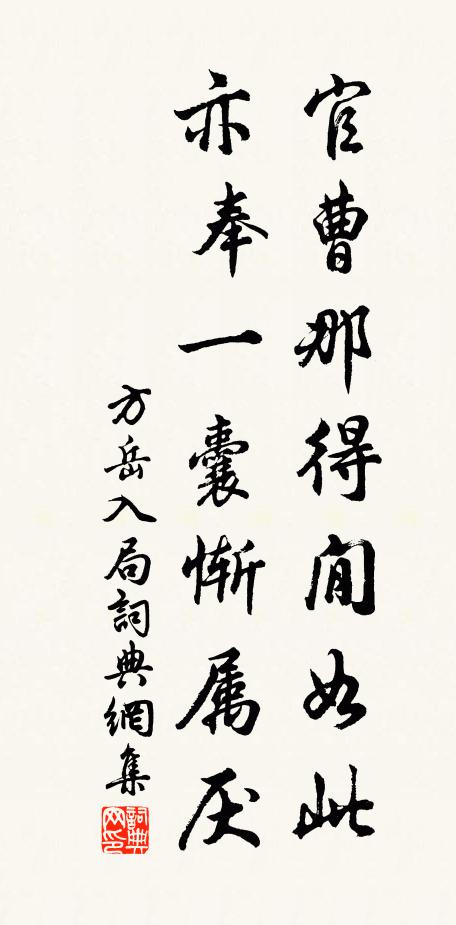 官曹那得閒如此
亦奉一囊慚属厌
方岳入局詞典網集
詞典网印